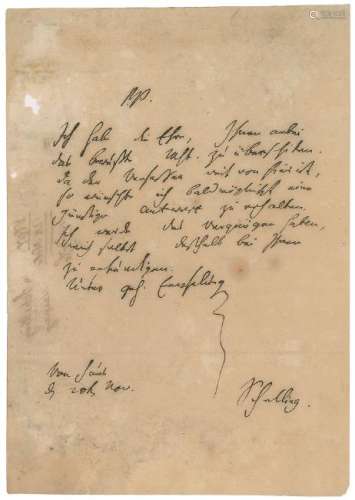 P.P.
Ich habe die Ehre, Ihnen anbei
das bewußte zu überschicken.
Da der Verfasser mit von hier ist,
so wünscht ich baldmöglichst eine
günstige Antwort zu erhalten.
Ich werde das Vergnügen haben,
mich selbst deshalb bei Ihnen
zu erkundigen.
Unter geh. Empfehlung
Von Haus
d. 20t. Nov.
Schelling.